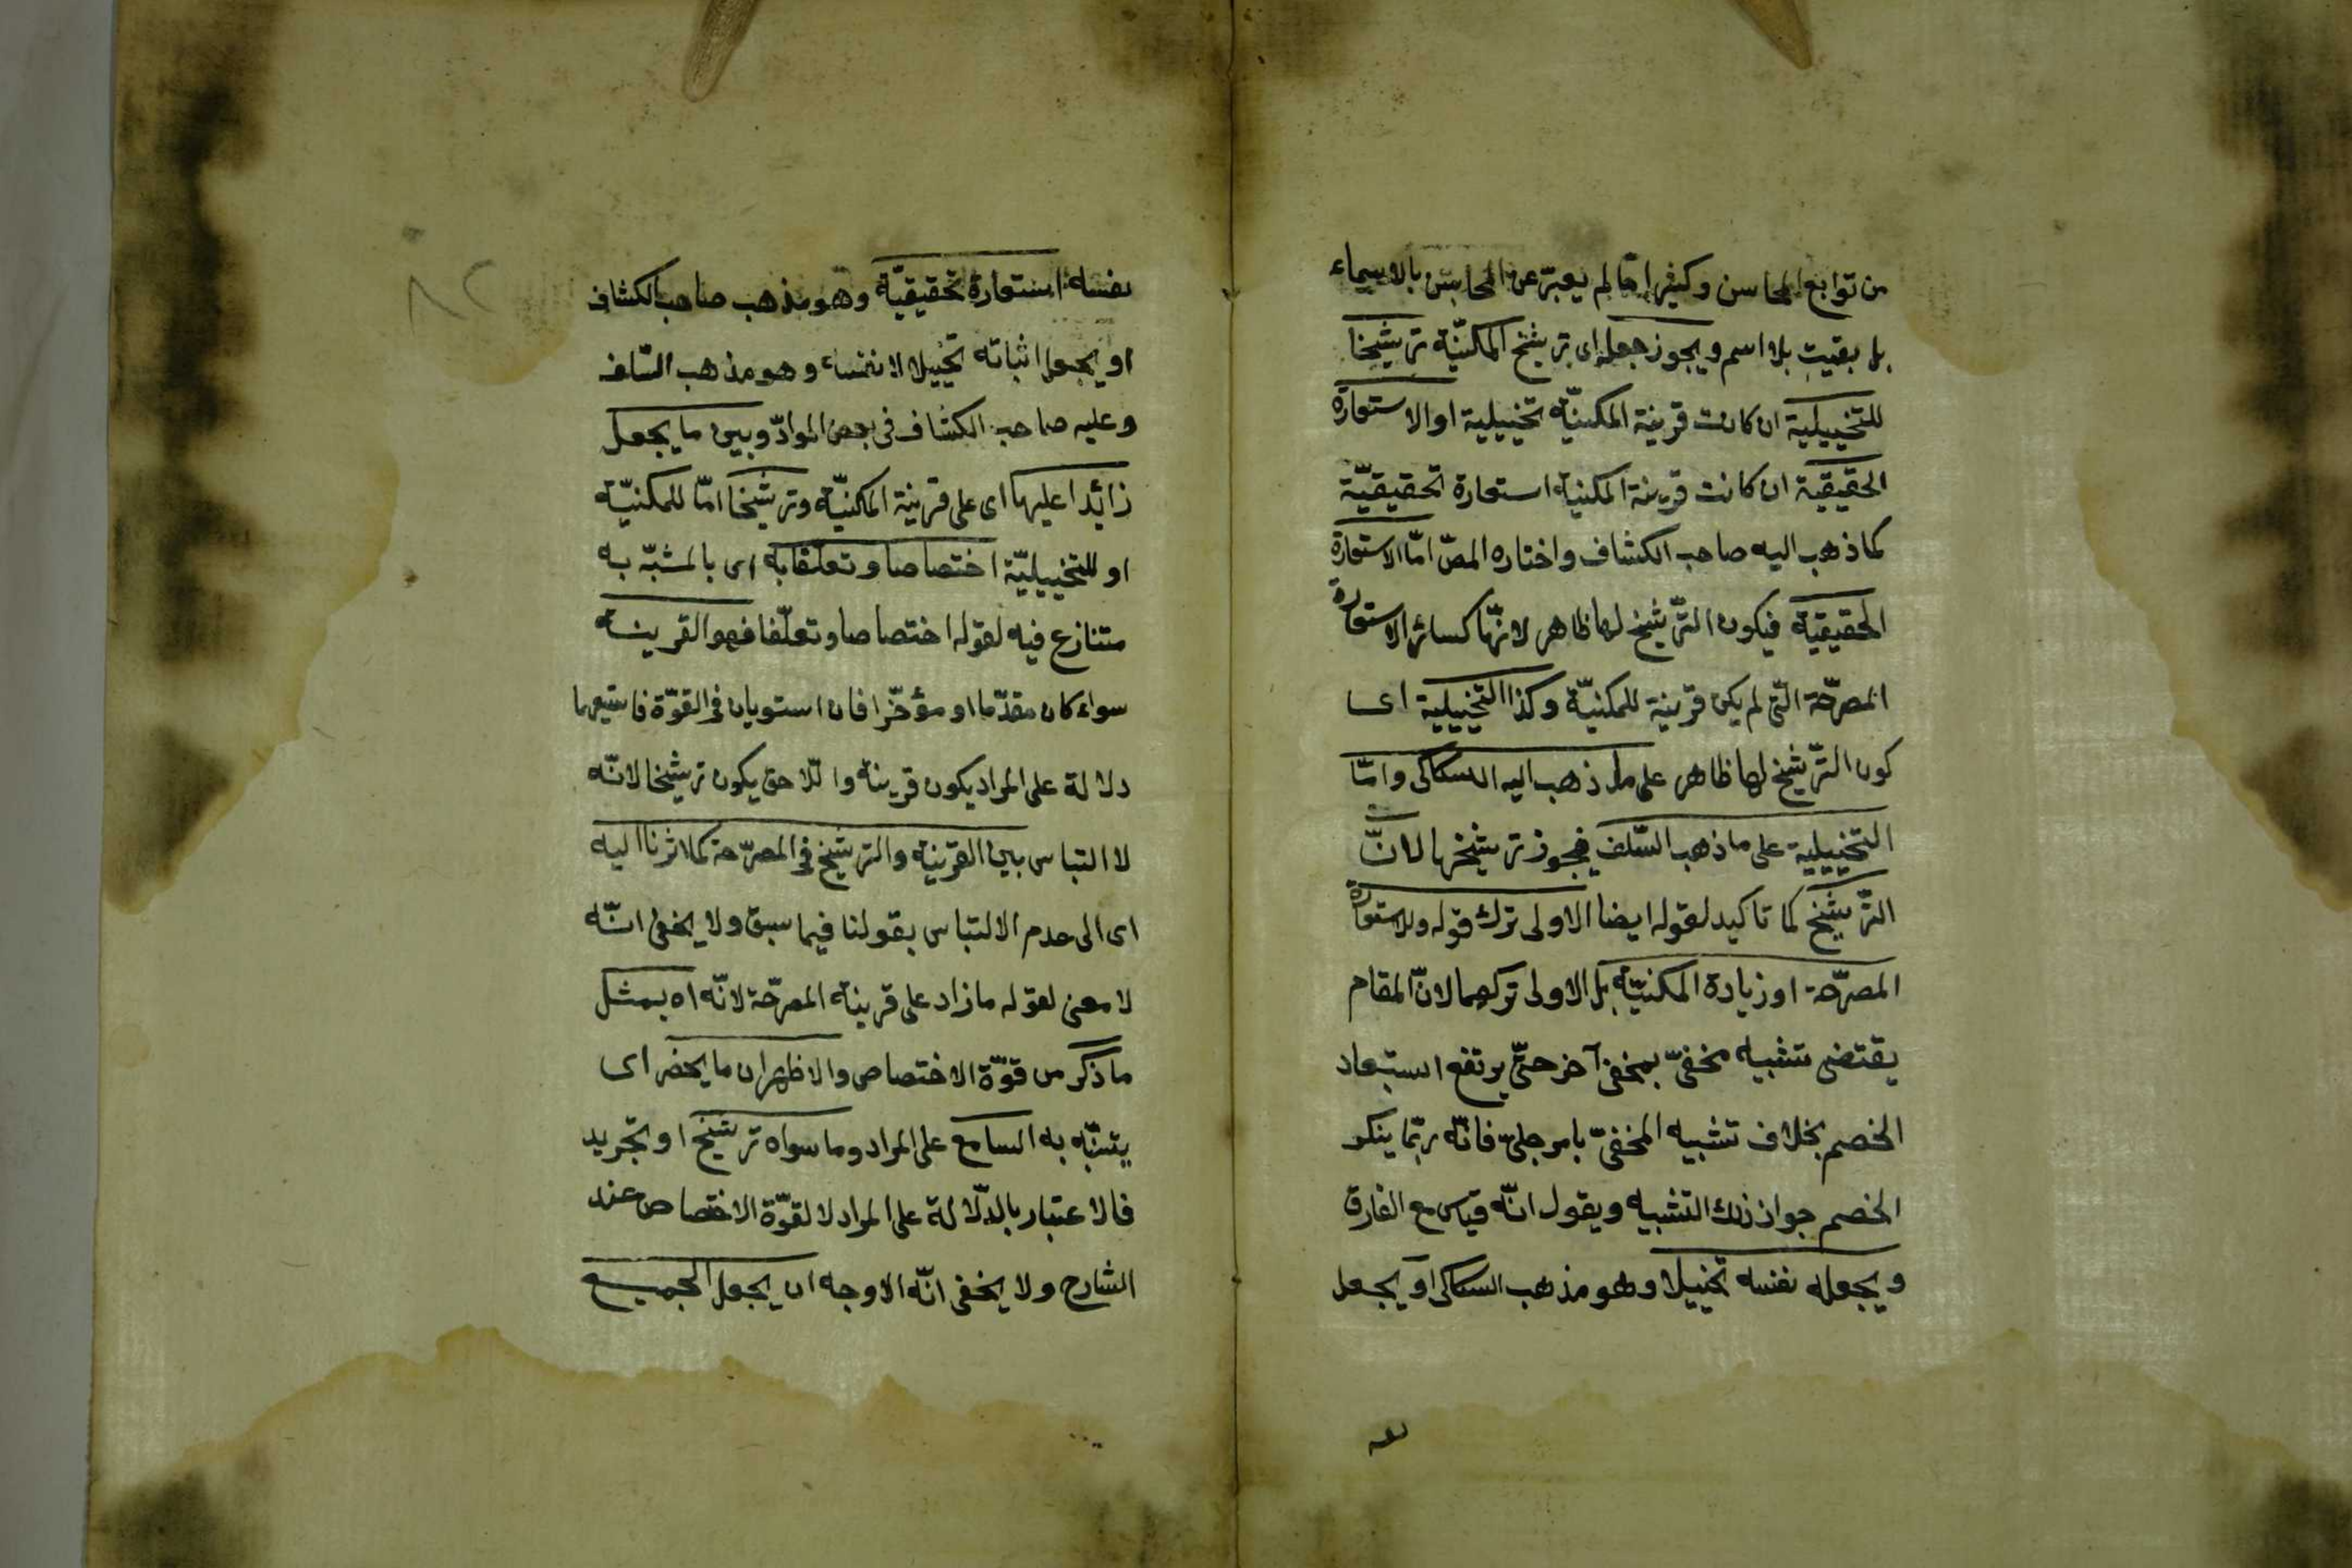 من توابع المحاسن وكثيرا ما لم يعبّر عن المحاسن بالاسماء
بل بقيت بلا اسم ويجوز جعله اى ترشيح المكنيّة ترشيحا
للتخييلية ان كانت قرينة المكنيّة تخييلية او الاستعارة
الحقيقية ان كانت قرينة المكنية استعارة تحقيقيّة
كما ذهب اليه صاحب الكشاف واختاره المصّ امّا الاستعارة
الحقيقيّة فيكون التّرشيح لها ظاهر لانّها كسائر الاستعارة
المصرّحة الّتى لم يكن قرينة للمكنيّة وكذا التخييلية اى
كون التّرشيح لها ظاهر على ما ذهب اليه السكاكى وامّا
التخييلية على ما ذهب السّلف فيجوز ترشيحها لانّ
التّرشيح كما تاكيد لقوله ايضا الاولى ترك قوله وللاستعارة
المصرّحة او زيادة المكنيّة بل الاولى تركهما لانّ المقام
يقتضى تشبيه مخفىّ بمخفى آخر حتّى يرتفع استبعاد
الخصم بخلاف تشبيه المخفىّ بامر جلىّ فانّه ربّما ينكر
الخصم جواز ذلك التشبيه ويقول انّه قياس مع الفارق
ويجعله نفسه تخييلا وهو مذهب السكاكى او يجعل
نفسه استعارة تحقيقيّة وهو مذهب صاحب الكشاف
او يجعل اثباته تخييلا لا نفسه وهو مذهب السّلف
وعليه صاحب الكشاف فى بعض الموادّ وبين ما يجعل
زائدا عليها اى على قرينة المكنيّة وترشيحا امّا للمكنيّة
او للتخييليّة اختصاصا وتعلقا به اى بالمشبّه به
متنازع فيه لقوله اختصاصا وتعلّقا فهو القرينة
سواء كان مقدّما او مؤخّرا فان استويان فى القوّة فاسبقهما
دلالة على المراد يكون قرينة واللّاحق يكون ترشيحا لانّه
لا التباس بين القرينة والترشيح فى المصرّحة كما اشرنا اليه
اى الى عدم الالتباس بقولنا فيما سبق ولا يخفى انّه
لا معنى لقوله ما زاد على قرينة المصرّحة لانّه اه بمثل
ما ذكر من قوّة الاختصاص والاظهر ان ما يحضر اى
يتنبّه به السامع على المراد وما سواه ترشيح او تجريد
فالاعتبار بالدّلالة على المراد لا لقوّة الاختصاص عند
الشارح ولا يخفى انّه الاوجه ان يجعل الجميع